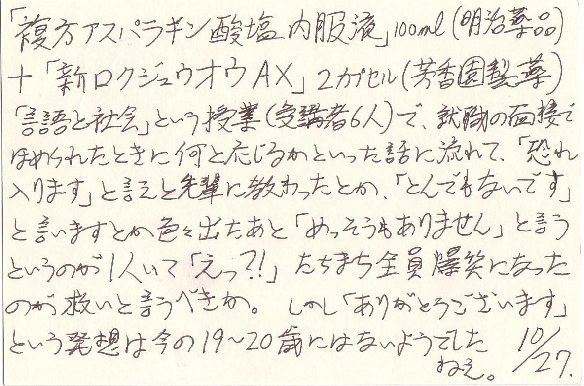 「複方アスパラギン酸塩内服液」100ml(明治薬品)
+「新ロクジョウオウAX」2カプセル(芳香園製薬)
「言語と社会」という授業(受講者6人)で、就職の面接で
ほめられたときに何と応じるかといった話に流れて、「恐れ
入ります」と言えと先輩に教わったとか、「とんでもないです」
と言いますとか色々出たあと「めっそうもありません」と言う
というのが1人いて「えっ?!」たちまち全員爆笑になった
のが救いと言うべきか。しかし「ありがとうございます」
という発想は今の19〜20歳にはないようでした
ねえ。 10/27.